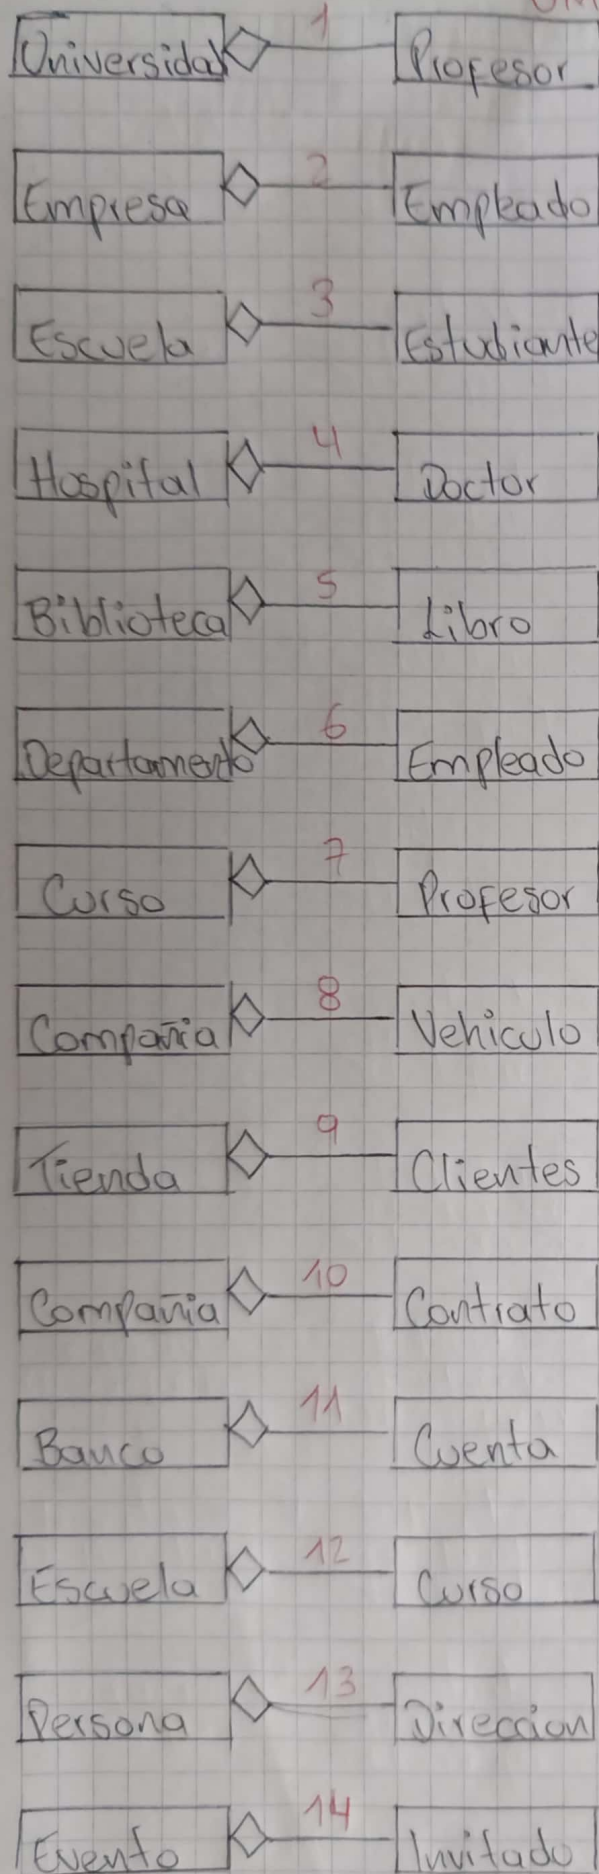 Universidad 1 Profesor
Empresa 2 Empleado
Escuela 3 Estudiante
Hospital 4 Doctor
Biblioteca 5 Libro
Departamento 6 Empleado
Curso 7 Profesor
Compañia 8 Vehiculo
Tienda 9 Clientes
Compañia 10 Contrato
Banco 11 Cuenta
Escuela 12 Curso
Persona 13 Direccion
Evento 14 Invitado